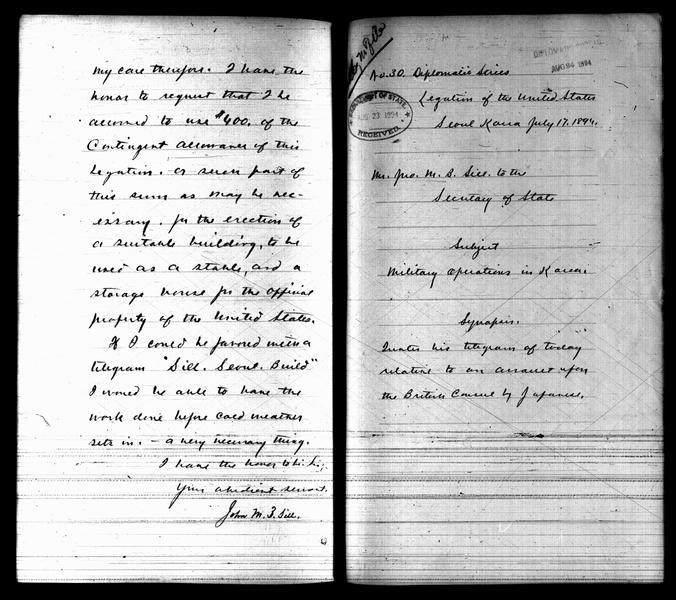 my care therefore. I have the
honor to request that I be
allowed to use $400. of the
Contingent allowance of this
Legation. or such part of
this sum as may be nec-
essary. for the erection of
a suitable building, to be
used as a stable, and a
storage house for the official
property of the United States.
If I could be favored with a
telegram "Sill. Seoul. Build"
I would be able to have the
work done before cold weather
sets in. - a very necessary thing.
I have the honor to be Sir,
Your obedient servant.
John M. B. Sill.
No. 30. Diplomatic Series
AUG 24 1894
Legation of the United States
DEPARTMENT OF STATE.
AUG 23 1894
RECEIVED
Seoul Korea July 17. 1894.
Mr. Jno. M. B. Sill. to the
Secretary of State
Subject
Military operations in Korea.
Synopsis.
Quotes his telegram of today
relative to an assault upon
the British Consul by Japanese.